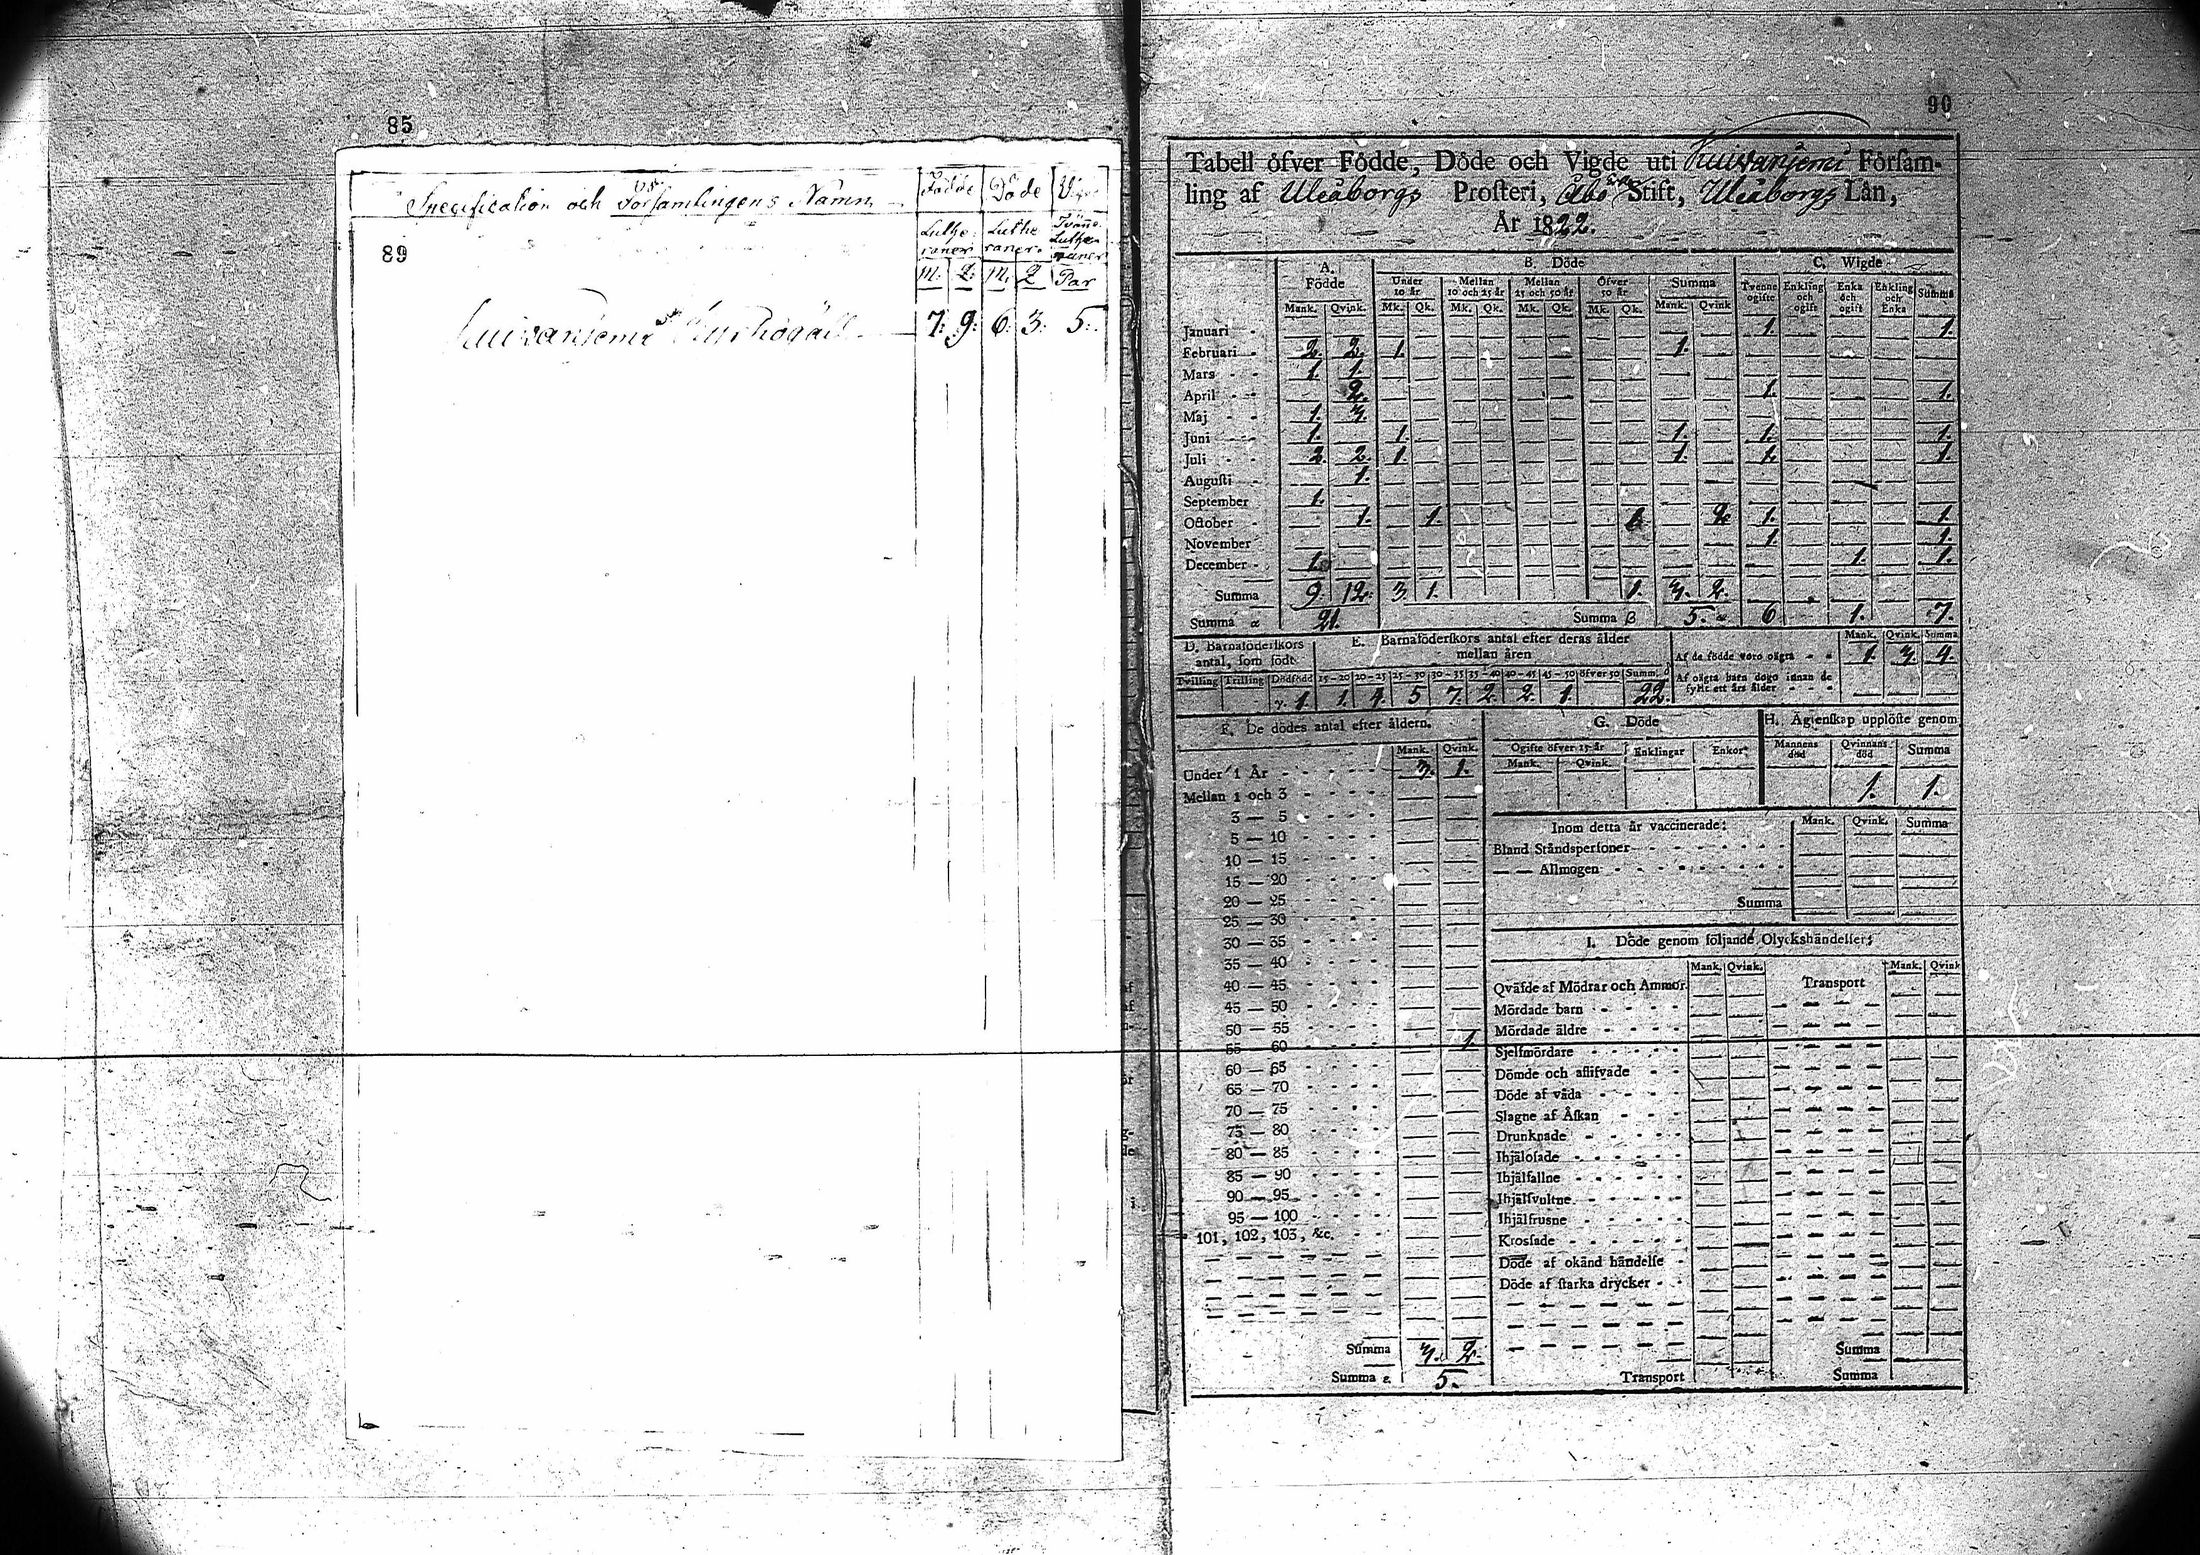 85
Specification och Församlingens Namn
Födde Döde
Luthe- raner Luthe raner Tvänne Luthe- raner
M. Q. M. Q Par
89
Kuivaniemi 7. 9. 6. 3. 5.
90
Tabell öfver Födde, Döde och Vigde uti Kuivaniemi Försam-
ling af Uleåborgs Prosteri, Åbo Stift, Uleåborgs Län,
År 1822.
A. Födde B. Döde C. Wigde
Under 10 år Mellan 10 och 25 år Mellan 25 och 50 år Öfver 50 år Summa Tvenne ogifte Enkling och ogift Enka och ogift Enkling och Enka Summa
Mank. Qvink. Mk. Qk. Mk. Qk. Mk. Qk. Mk. Qk. Mank. Qvink
Januari - 1. 1.
Februari - 2. 2. 1. 1.
Mars - - 1. 1.
April - - 2. 1. 1.
Maj - - 1. 3.
Juni - - 1. 1. 1. 1. 1.
Juli - - 2. 2. 1. 1. 1. 1.
Augusti - 1.
September 1.
October - 1. 1. 1. 2. 1. 1.
November - 1. 1.
December - 1. 1. 1.
Summa 9. 12. 3. 1. 1. 3. 2.
Summa α 21. Summa β 5. 6 1. 7.
D. Barnaföderskors antal, som födt
Tvilling Trilling Dödfödd
γ. 1.
E. Barnaföderskors antal efter deras ålder mellan åren
15-20 20-25 25-30 30-35 35-40 40-45 45-50 öfver 50 Summ. δ
1. 4. 5 7. 2. 2. 1. 22.
Mank. Qvink. Summa
Af de födde voro oägta - - 1. 3. 4.
Af oägta barn dogo innan de fyllt ett års ålder - - -
F. De dödes antal efter åldern.
Mank. Qvink.
Under 1 År - - - - - 3. 1.
Mellan 1 och 3 - - - -
3 — 5 - - - -
5 — 10 - - - -
10 — 15 - - - -
15 — 20 - - - -
20 — 25 - - - -
25 — 30 - - - -
30 — 35 - - - -
35 — 40 - - - -
40 — 45 - - - -
45 — 50 - - - -
50 — 55 - - - -
55 — 60 - - - - 1.
60 — 65 - - - -
65 — 70 - - - -
70 — 75 - - - -
75 — 80 - - - -
80 — 85 - - - -
85 — 90 - - - -
90 — 95 - - - -
95 — 100 - - - -
101, 102, 103, &c. - -
Summa 3. 2.
Summa ε. 5.
G. Döde
Ogifte öfver 15 år Enklingar Enkor
Mank. Qvink.
H. Ägtenskap upplöste genom
Mannens död Qvinnans död Summa
1. 1.
Inom detta år vaccinerade: Mank. Qvink. Summa
Bland Ståndspersoner - - - - - - -
— — Allmogen - - - - - - - -
Summa
I. Döde genom följande Olyckshändelser;
Mank. Qvink. Mank. Qvink
Qväfde af Mödrar och Ammor. Transport
Mördade barn - - - - -
Mördade äldre - - - -
Sjelfmördare - - - - -
Dömde och aflifvade - -
Döde af våda - - - -
Slagne af Åskan - - -
Drunknade - - - - -
Ihjälosade - - - - -
Ihjälfallne - - - - -
Ihjälsvultne - - - - -
Ihjälfrusne - - - - -
Krossade - - - - - -
Döde af okänd händelse -
Döde af starka drycker - -
Summa
Transport Summa